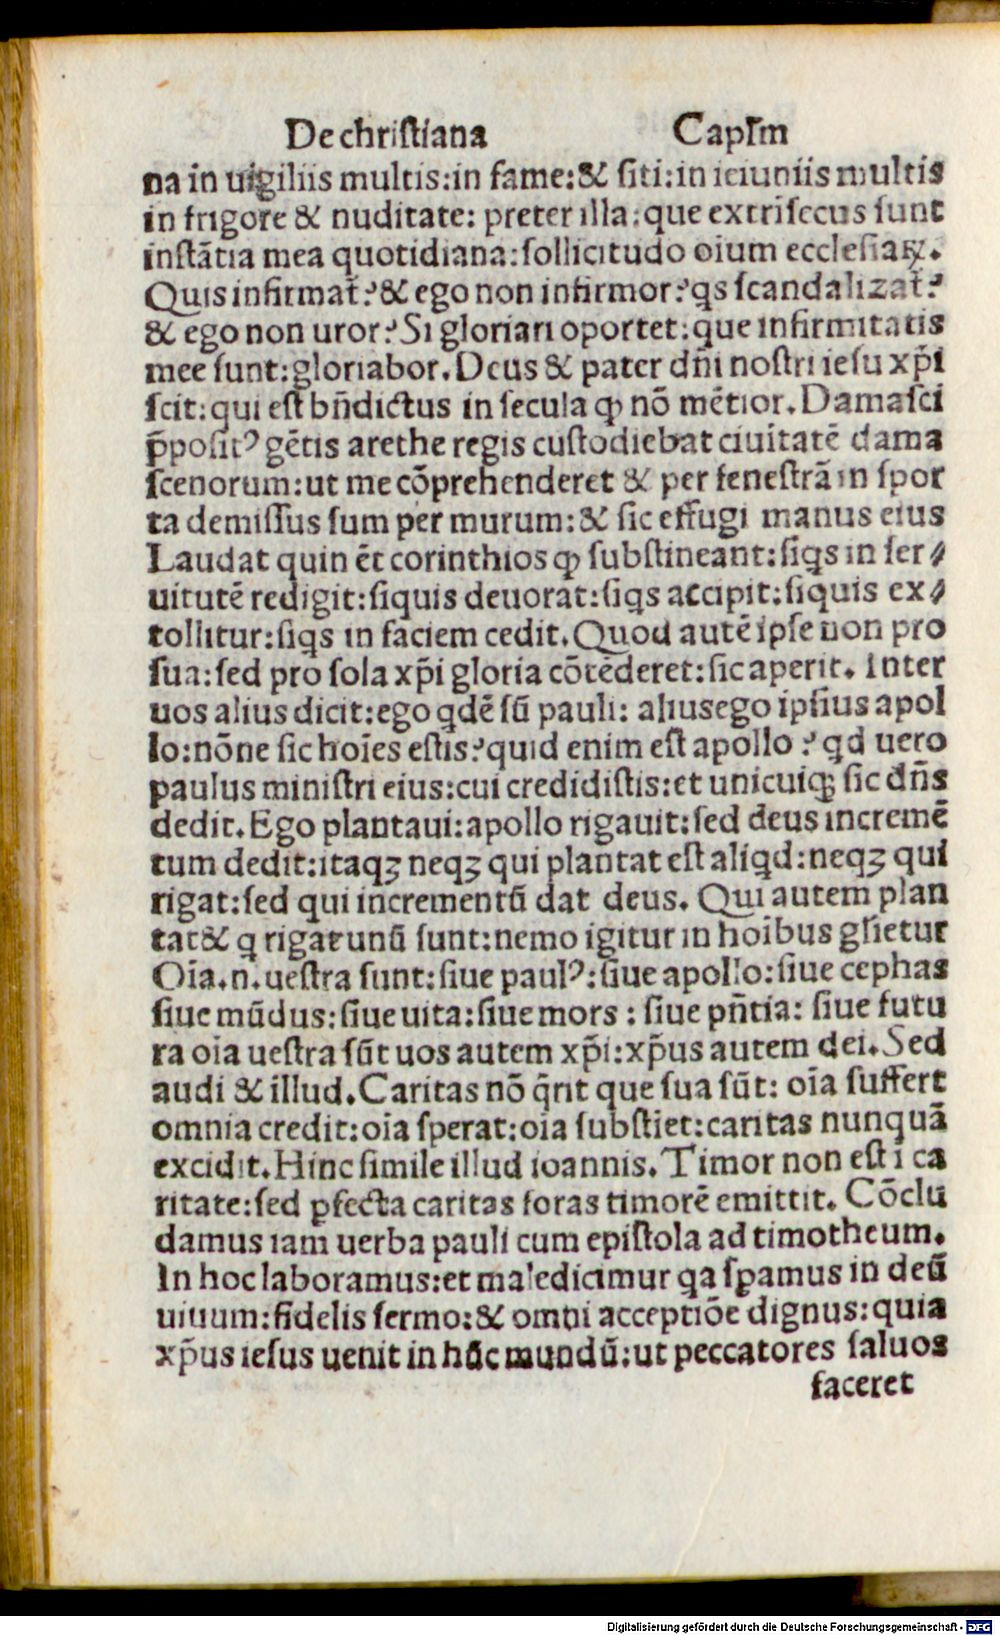 De christiana Capĺm
na in uigiliis multis:in fame:& siti:in ieiuniis multis
in frigore & nuditate: preter illa:que extrisecus sunt
instātia mea quotidiana:sollicitudo oium ecclesiaꝝ.
Quis infirmat̄?& ego non infirmor?qͥs scandalizat̄?
& ego non uror?Si gloriari oportet:que infirmitatis
mee sunt:gloriabor.Deus & pater dn̄i nostri iesu xp̄i
scit:qui est bn̄dictus in secula ꝙ nō mētior.Damasci
p̄positꝰ gētis arethe regis custodiebat ciuitatē dama
scenorum:ut me cōprehenderet & per fenestrā in spor
ta demissus sum per murum:& sic effugi manus eius
Laudat quin ēt corinthios ꝙ substineant:siqͥs in ser⸗
uitutē redigit:siquis deuorat:siqͥs accipit:siquis ex⸗
tollitur:siqͥs in faciem cedit.Quod autē ipse non pro
sua:sed pro sola xp̄i gloria cōtēderet:sic aperit. Inter
uos alius dicit:ego qͥdē sū pauli: alius ego ipsius apol
lo:nōne sic hoīes estis?quid enim est apollo ? qͥd uero
paulus ministri eius:cui credidistis:et unicuiqꝫ sic dn̄s
dedit.Ego plantaui:apollo rigauit:sed deus incremē
tum dedit:itaqꝫ neqꝫ qui plantat est aliqͥd:neqꝫ qui
rigat:sed qui incrementū dat deus. Qui autem plan
tat& qͥ rigat unū sunt:nemo igitur in hoībus gl̄ietur
Oīa.n.uestra sunt:siue paulꝰ:siue apollo:siue cephas
siue mūdus:siue uita:siue mors : siue pn̄tia: siue futu
ra oīa uestra sūt uos autem xp̄i:xp̄us autem dei.Sed
audi & illud.Caritas nō q̄rit que sua sūt: oīa suffert
omnia credit:oīa sperat:oīa substīet:caritas nunquā
excidit.Hinc simile illud ioannis.Timor non est ī ca
ritate:sed ꝑfecta caritas foras timorē emittit. Cōclu
damus iam uerba pauli cum epistola ad timotheum.
In hoc laboramus:et maledicimur qͥa sꝑamus in deū
uiuum:fidelis sermo:& omni acceptiōe dignus:quia
xp̄us iesus uenit in hūc mundū:ut peccatores saluos
faceret
Digitalisierung gefördert durch die Deutsche Forschungsgemeinschaft - DFG